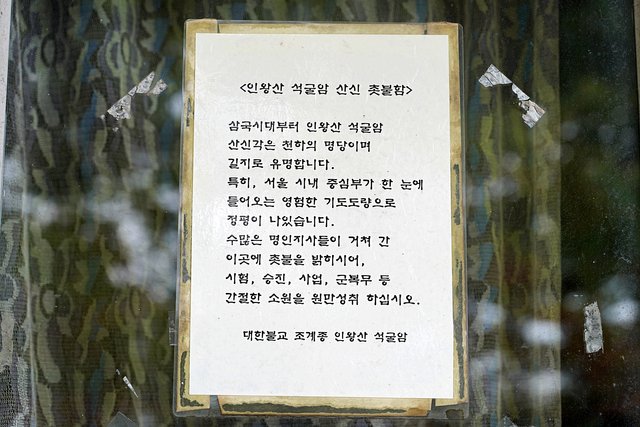 <인왕산 석굴암 산신 촛불함>
삼국시대부터 인왕산 석굴암
산신각은 천하의 명당이며
길지로 유명합니다.
특히, 서울 시내 중심부가 한 눈에
들어오는 영험한 기도도량으로
정평이 나있습니다.
수많은 명인지사들이 거쳐 간
이곳에 촛불을 밝히시어,
시험, 승진, 사업, 군복무 등
간절한 소원을 원만성취 하십시오.
대한불교 조계종 인왕산 석굴암